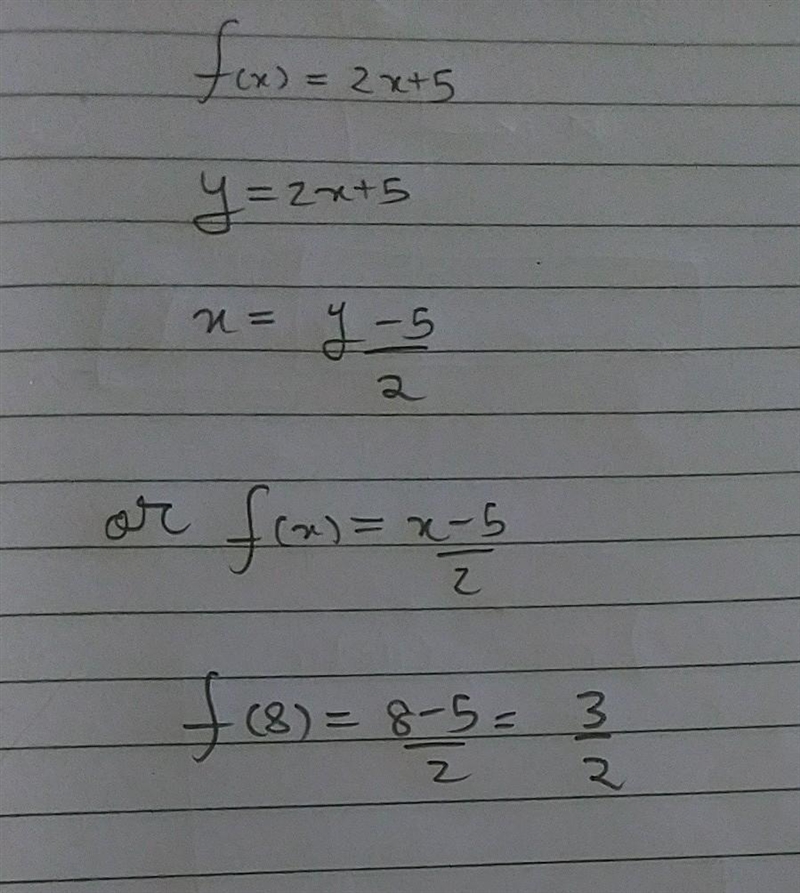 f(x) = 2x+5
y = 2x+5
x = y - 5
2
or f(x) = x-5
2
f(8) = 8-5 = 3
2 2